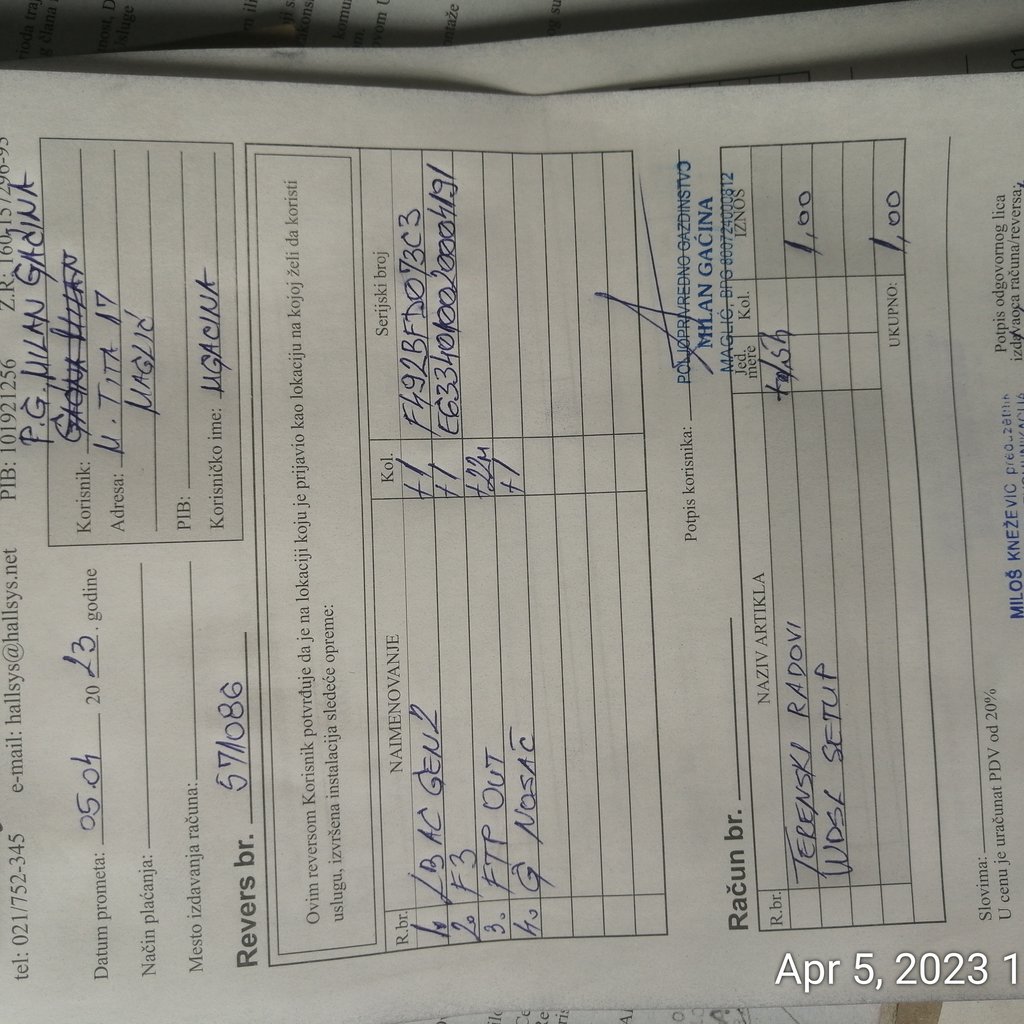 tel: 021/752-345 e-mail: hallsys@hallsys.net PIB: 101921256 Z.R: 160-157296-93
P.G. MILAN GAĆINA
Datum prometa: 05.04 2023. godine
Korisnik:
Adresa: M. TITA 17
MAGLIĆ
Način plaćanja:
PIB:
Mesto izdavanja računa:
Korisničko ime: MGACINA
Revers br. 571086
Ovim reversom Korisnik potvrđuje da je na lokaciji koju je prijavio kao lokaciju na kojoj želi da koristi
uslugu, izvršena instalacija sledeće opreme:
R.br. NAIMENOVANJE Kol. Serijski broj
1. LBAC GEN2 +1 F492BFD073C3
2. F3 +1 E63340100200004191
3. FTP OUT +22M
4. G NOSAČ +1
Potpis korisnika:
POLJOPRIVREDNO GAZDINSTVO
MILAN GAĆINA
MAGLIĆ, BPG 800724000812
Račun br.
R.br. NAZIV ARTIKLA Jed. mere Kol. IZNOS
TERENSKI RADOVI 1,00
WDSL SETUP
UKUPNO: 1,00
Slovima:
U cenu je uračunat PDV od 20%
Potpis odgovornog lica
izdavaoca računa/reversa
MILOŠ KNEŽEVIĆ
Apr 5, 2023 1